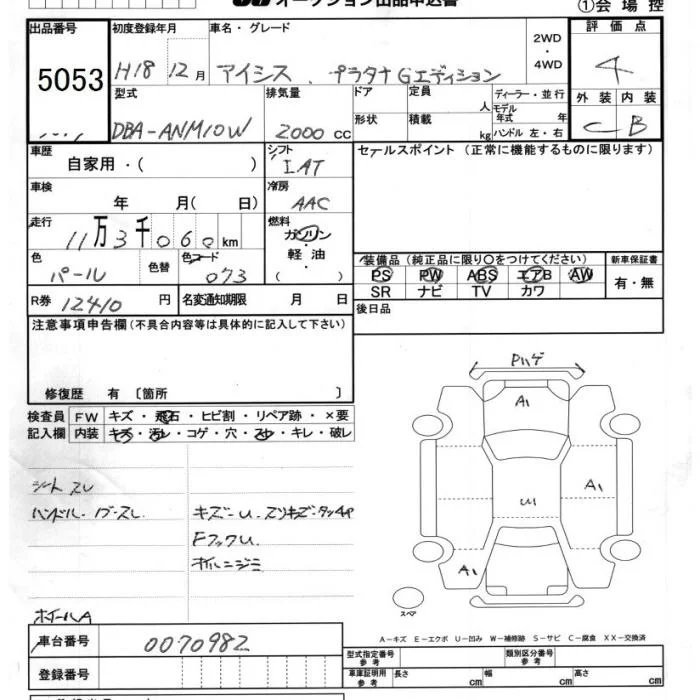 オークション出品申込書
①会場控
出品番号 初度登録年月 車名・グレード 2WD・4WD 評価点
5053 H18 12月 アイシス、プラタナGエディション 4
型式 排気量 ドア 定員 人 ディーラー・並行 外装 内装
DBA-ANM10W 2000cc 形状 積載 kg モデル年式 年 ハンドル 左・右 C B
車歴 シフト セールスポイント(正常に機能するものに限ります)
自家用・( ) IAT
車検 冷房
年 月( 日) AAC
走行 燃料
11万3千060km ガソリン・軽油・( )
色 色替 色コード 装備品(純正品に限り○をつけてください) 新車保証書
パール 073 PS PW ABS エアB AW 有・無
SR ナビ TV カワ
R券 12410円 名変通知期限 月 日 後日品
注意事項申告欄(不具合内容等は具体的に記入して下さい)
修復歴 有〔箇所 〕
検査員記入欄 FW キズ・飛石・ヒビ割・リペア跡・×要
内装 キズ・汚レ・コゲ・穴・スレ・キレ・破レ
シートスレ
ハンドル・ノブスレ キズ-U.スリキズ-タッチP
FフックU
オイルニジミ
ホイールA
Pハゲ
A1
A1
U1
A1
スペア
A-キズ E-エクボ U-凹み W-補修跡 S-サビ C-腐食 XX-交換済
車台番号 0070982
型式指定番号 参考 類別区分番号 参考
登録番号 車庫証明用 参考 長さ cm 幅 cm 高さ cm